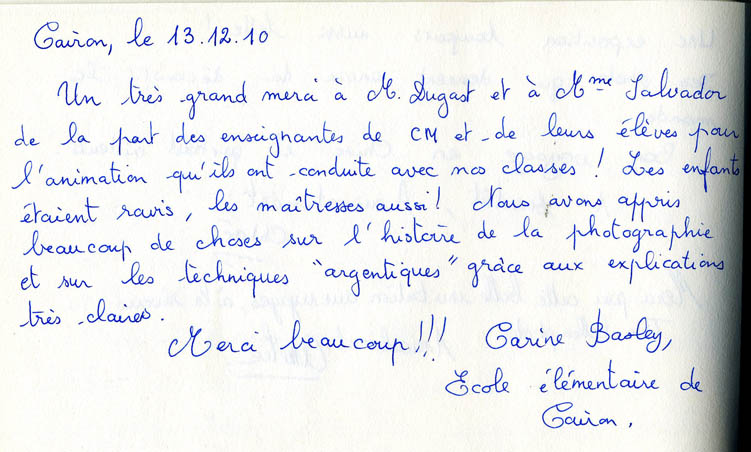 Cairon, le 13.12.10
Un très grand merci à M. Dugast et à Mme Salvador
de la part des enseignantes de CM et de leurs élèves pour
l'animation qu'ils ont conduite avec nos classes ! Les enfants
étaient ravis, les maîtresses aussi ! Nous avons appris
beaucoup de choses sur l'histoire de la photographie
et sur les techniques "argentiques" grâce aux explications
très claires.
Merci beaucoup !!! Carine Basley,
Ecole élémentaire de
Cairon.